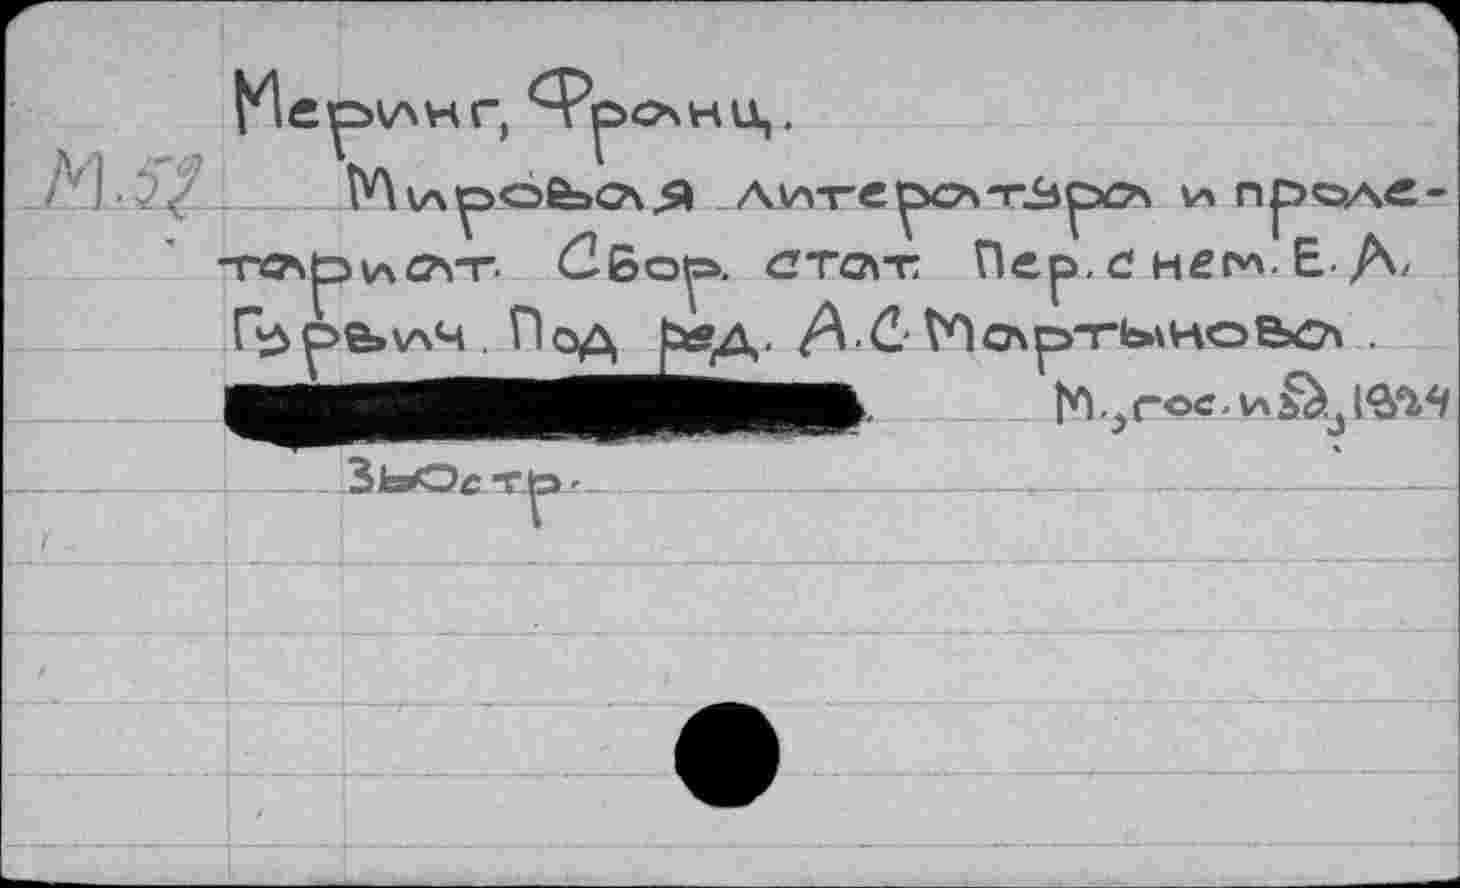 Меринг, Франц.
М.52
Мировая литература и проле-
тариат. Сбор. стат. Пер. с нем. Е. А.
Гурвич. Под ред. А. С. Мартынова.
М., гос. изд, 1924
Экз